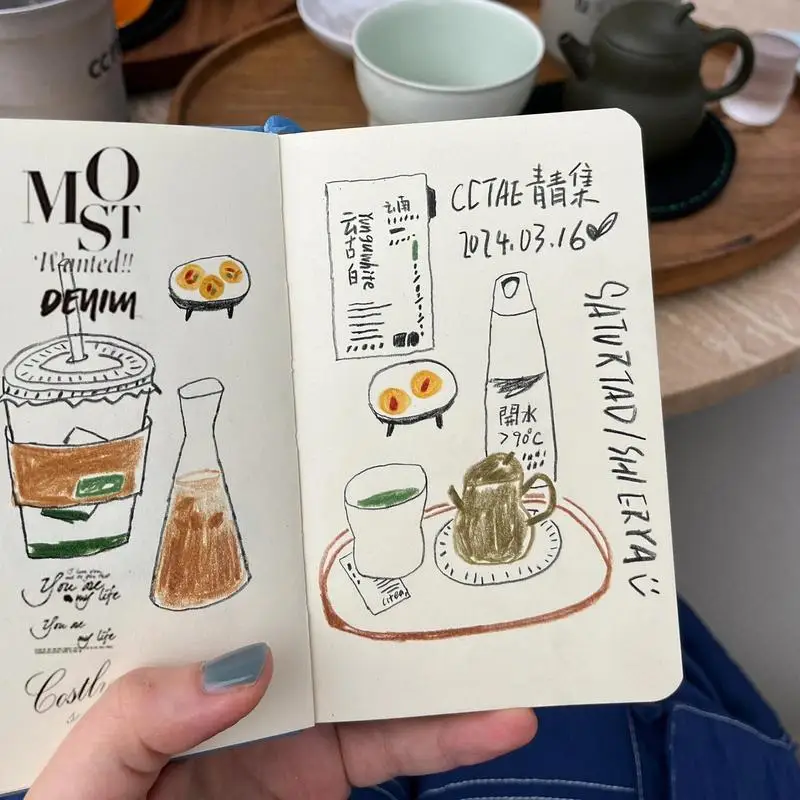 MOST
'Wanted!!
DENIM
You are
my life
You are
my life
CCTAE 青青集
2024.03.16
云南
Yunguwhite
云古白
開水
>90°C
SATURTAD/SHIERYA